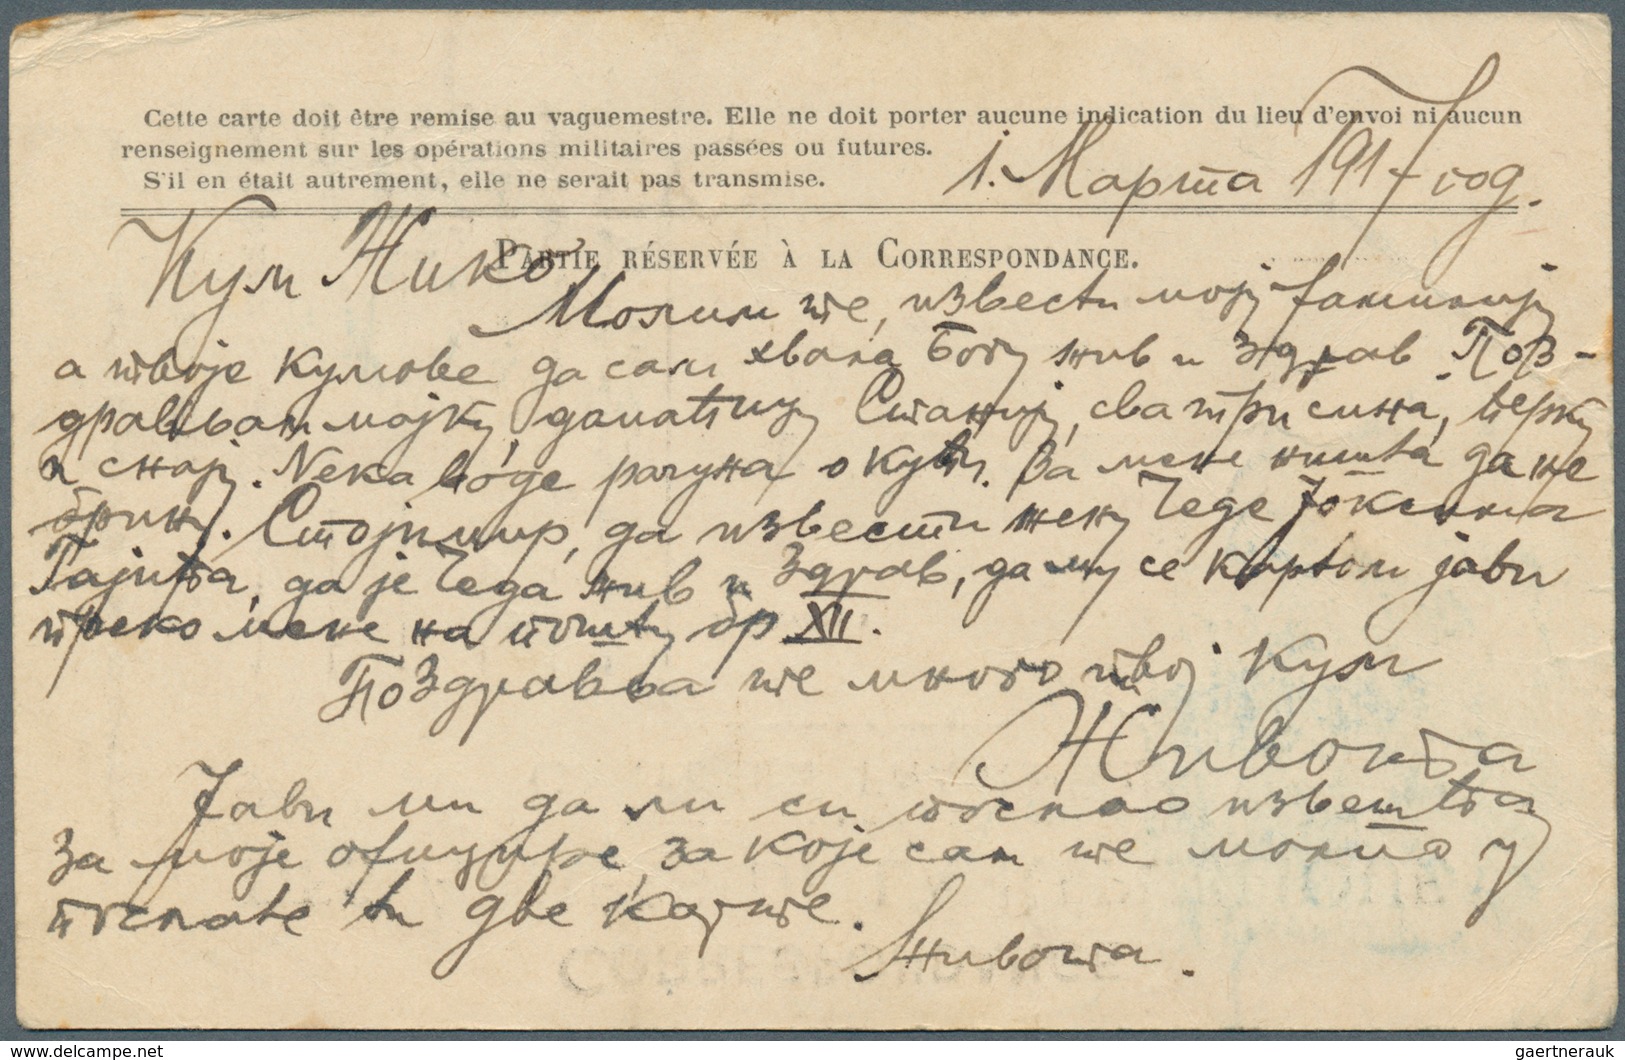 Cette carte doit être remise au vaguemestre. Elle ne doit porter aucune indication du lieu d'envoi ni aucun
renseignement sur les opérations militaires passées ou futures.
S'il en était autrement, elle ne serait pas transmise.
1. Марта 1917 год.
PARTIE RÉSERVÉE À LA CORRESPONDANCE.
Кум Жико
Молим те, извести моју фамилију
а твоје кумове да сам хвала Богу жив и здрав. Поз-
дрављам мајку, Станију, сва три сина, Перку
и снају. Нека воде рачуна о кући. За мене ништа да не
брину. Стојимир, да извести жену Чеде Јоксима
Гајића, да је Чеда жив и здрав, да му се картом јави
преко мене на пошту бр XII.
Поздравља те много твој кум
Живота
Јави ми да ли си послао извештај
за моје официре, за које сам те молио у
послате ти две карте.
Живота.
gaertnerauk